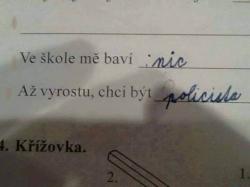 Ve škole mě baví : nic
Až vyrostu, chci být policista
4. Křížovka.
2. 1.